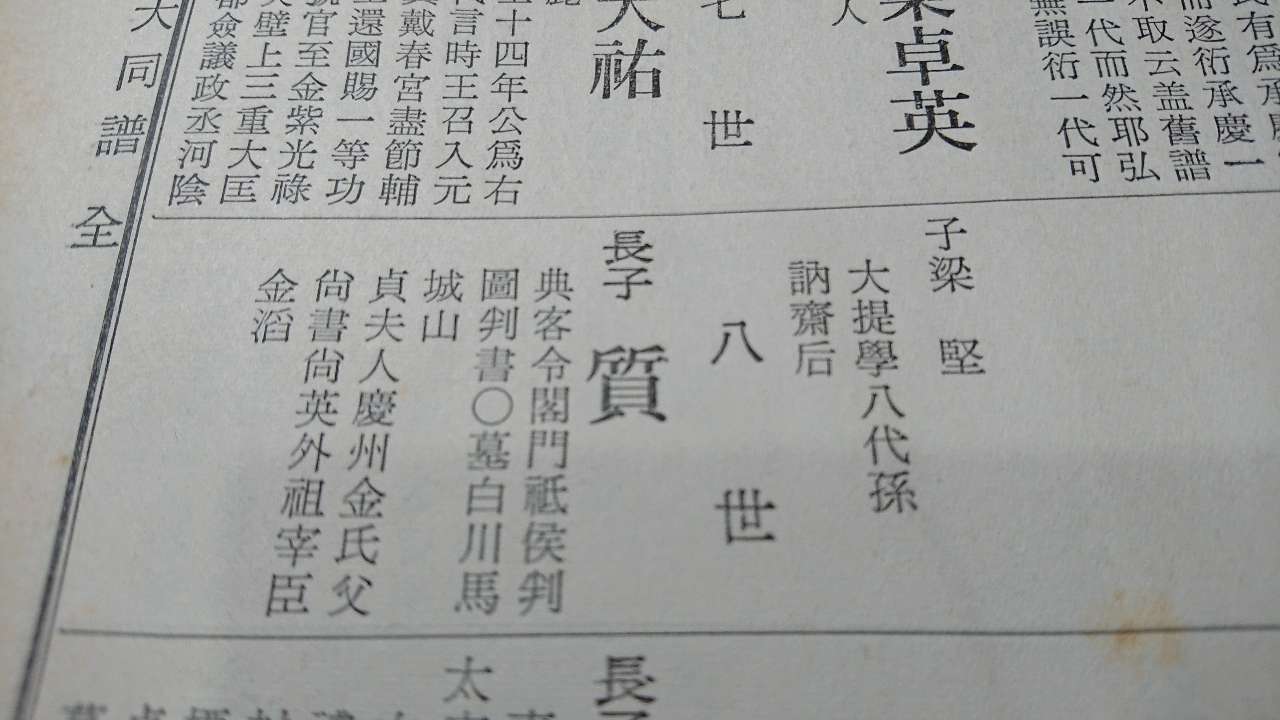 無誤衍一代可
一代而然耶弘
不取云盖舊譜
而遂衍承慶一
卓英
七世
天祐
至十四年公爲右
代言時王召入元
戴春宮盡節輔
還國賜一等功
號官至金紫光祿
壁上三重大匡
都僉議政丞河陰
子梁 堅
大提學八代孫
訥齋后
八世
長子 質
典客令閣門祗侯判
圖判書〇墓白川馬
城山
貞夫人慶州金氏父
尙書尙英外祖宰臣
金滔
長子
太
大同譜 全